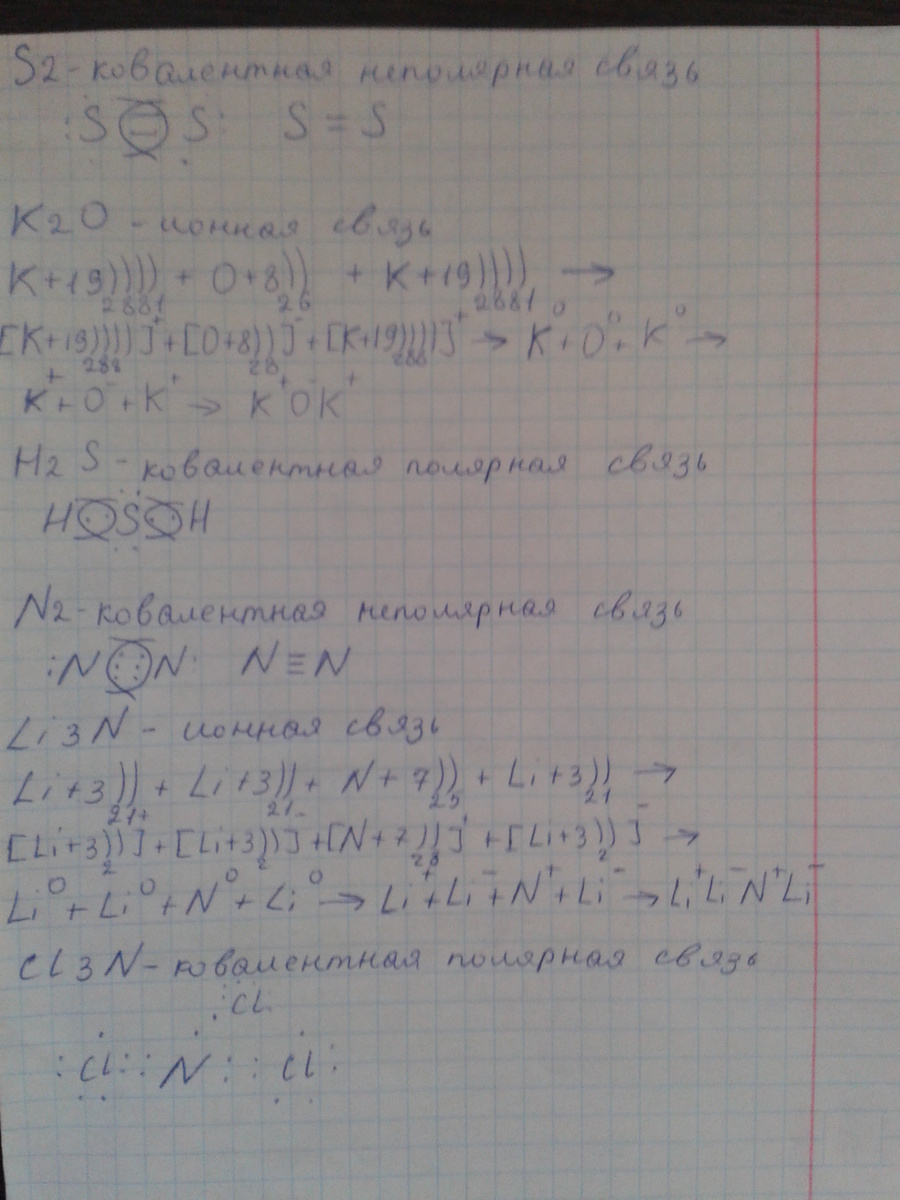 S2 - ковалентная неполярная связь
:S = S: S = S
K2O - ионная связь
K+19)))) + O+8)) + K+19)))) →
2881 26 2881
[K+19))))]⁺ + [O+8))]⁻ + [K+19))))]⁺ → K⁰ + O⁰ + K⁰ →
288 28 288
K⁺ + O⁻ + K⁺ → K⁺O⁻K⁺
H2S - ковалентная полярная связь
H:S:H
N2 - ковалентная неполярная связь
:N⋮⋮N: N≡N
Li3N - ионная связь
Li+3)) + Li+3)) + N+7)) + Li+3)) →
21+ 21- 25 21
[Li+3))] + [Li+3))] + [N+7))]⁺ + [Li+3))]⁻ →
2 2 28 2
Li⁰ + Li⁰ + N⁰ + Li⁰ → Li⁺ + Li⁻ + N⁺ + Li⁻ → Li⁺Li⁻N⁺Li⁻
Cl3N - ковалентная полярная связь
:Cl
:Cl: : N : : Cl: